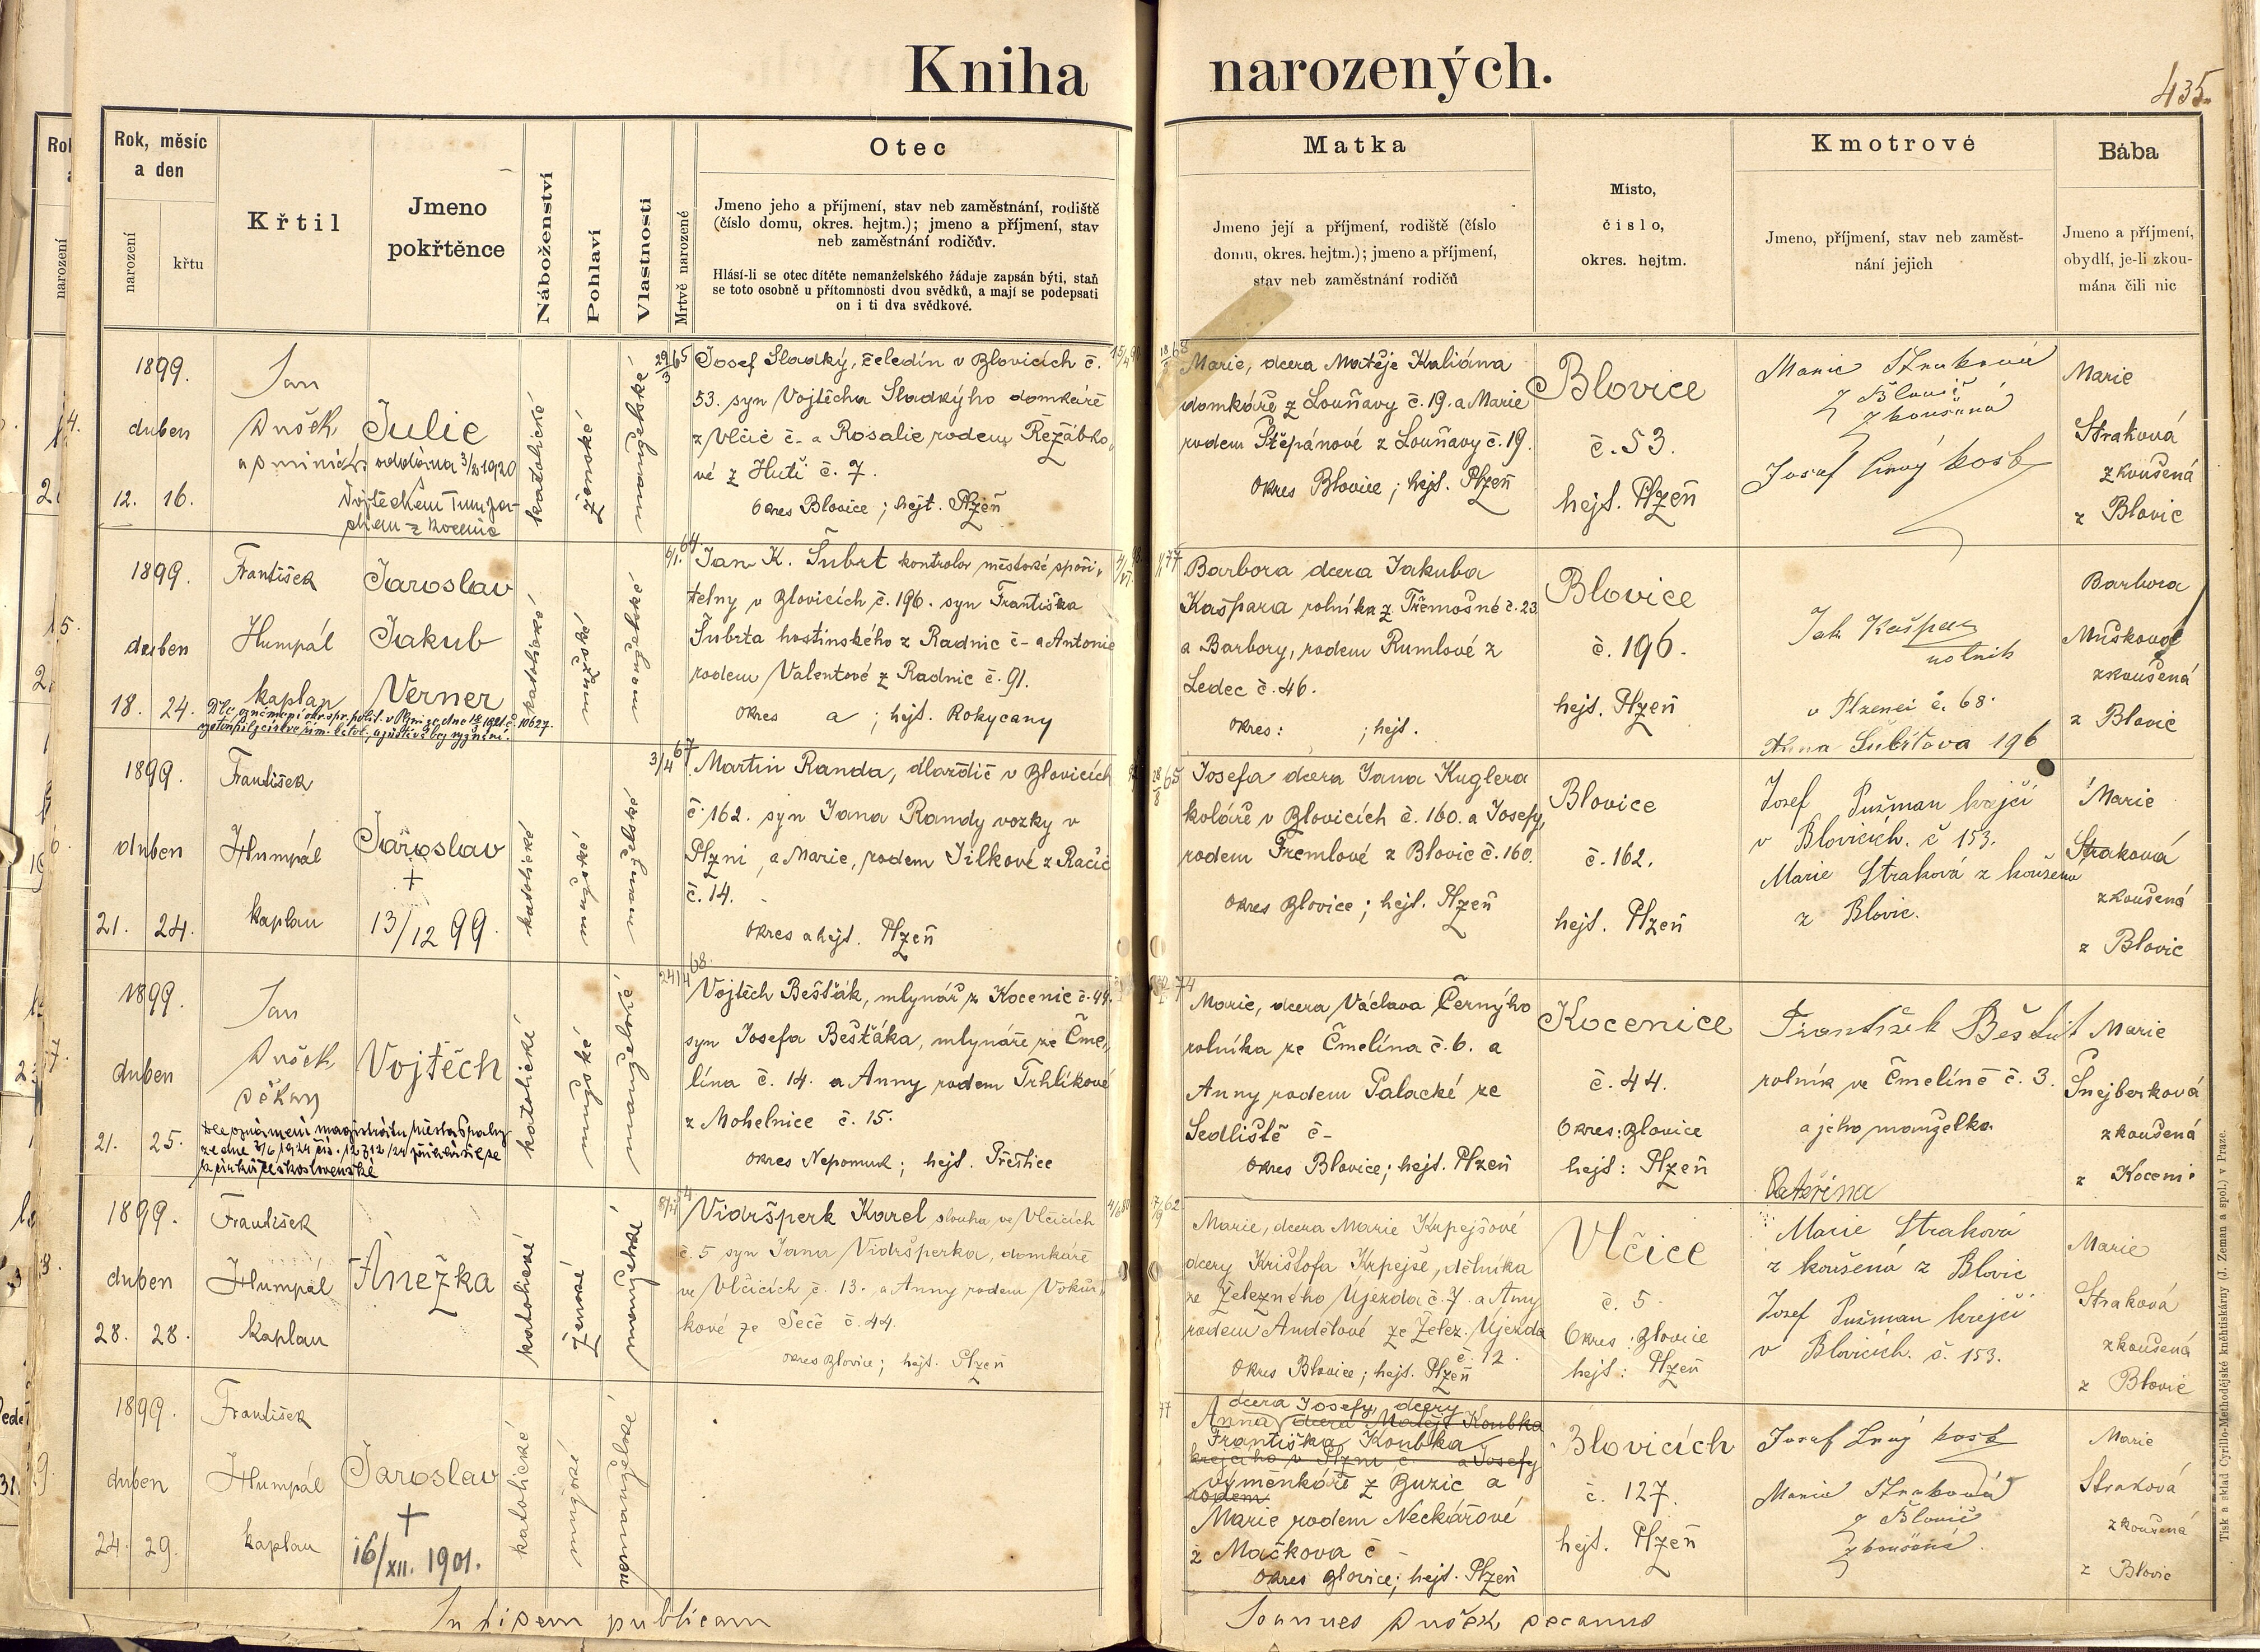 Kniha narozených.
435.
Rok, měsíc
a den
narození
křtu
Křtil
Jmeno
pokřtěnce
Náboženství
Pohlaví
Vlastnosti
Mrtvě narozené
Otec
Jmeno jeho a příjmení, stav neb zaměstnání, rodiště
(číslo domu, okres. hejtm.); jmeno a příjmení, stav
neb zaměstnání rodičův.
Hlásí-li se otec dítěte nemanželského žádaje zapsán býti, staň
se toto osobně u přítomnosti dvou svědků, a mají se podepsati
on i ti dva svědkové.
Matka
Jmeno její a příjmení, rodiště (číslo
domu, okres. hejtm.); jmeno a příjmení,
stav neb zaměstnání rodičů
Misto,
číslo,
okres. hejtm.
Kmotrové
Jmeno, příjmení, stav neb zaměst-
nání jejich
Bába
Jmeno a příjmení,
obydlí, je-li zkou-
mána čili nic
1899.
duben
12. 16.
Jan
Dušek
Julie
oddána 3/2 1920
Vojtěchem
z Kocenic
katolické
ženské
manželské
29/3 65
Josef Sladký, čeledín v Blovicích č.
53. syn Vojtěcha Sladkýho domkáře
z Vlčic č- a Rosalie rodem Řežábko-
vé z Hutí č. 7.
okres Blovice; hejt. Plzeň
Marie, dcera Matěje Kaliána
domkáře z Louňavy č. 19. a Marie
rodem Štěpánové z Louňavy č. 19.
okres Blovice; hejt. Plzeň
Blovice
č. 53.
hejt. Plzeň
Marie Straková
z Blovic
zkoušená
Josef
Marie
Straková
zkoušená
z Blovic
1899.
duben
18. 24.
František
Humpál
kaplan
Jaroslav
Jakub
Verner
katolické
mužské
manželské
Jan K. Šubrt kontrolor městské spoři-
telny v Blovicích č. 196. syn Františka
Šubrta hostinského z Radnic č- a Antonie
rodem Valentové z Radnic č. 91.
okres a; hejt. Rokycany
77
Barbora dcera Jakuba
Kašpara rolníka z Třemošné č. 23
a Barbory, rodem Rumlové z
Ledec č. 46.
okres: ; hejt.
Blovice
č. 196.
hejt. Plzeň
Jak. Kašpar
rolník
v Plzenci č. 68.
Anna Šubrtova 196
Barbora
Mušková
zkoušená
z Blovic
1899.
duben
21. 24.
František
Humpál
kaplan
Jaroslav
+
13/12 99.
katolické
mužské
manželské
3/4 67
Martin Randa, dlaždič v Blovicích
č. 162. syn Jana Randy vozky v
Plzni, a Marie, rodem Jílkové z Račic
č. 14.
okres a hejt. Plzeň
28/8 65
Josefa dcera Jana Kuglera
koláře v Blovicích č. 160. a Josefy,
rodem Fremlové z Blovic č. 160.
okres Blovice; hejt. Plzeň
Blovice
č. 162.
hejt. Plzeň
Josef Pužman krejčí
v Blovicích. č 153.
Marie Straková zkoušena
z Blovic.
Marie
Straková
zkoušená
z Blovic
1899.
duben
21. 25.
Jan
Dušek
děkan
Vojtěch
katolické
mužské
manželské
Vojtěch Bešťák, mlynář z Kocenic č. 44.
syn Josefa Bešťáka, mlynáře ze Čme-
lína č. 14. a Anny rodem Trhlíkové
z Mohelnice č. 15.
okres Nepomuk; hejt. Přeštice
74
Marie, dcera Václava Černýho
rolníka ze Čmelína č. 6. a
Anny rodem Palacké ze
Sedliště č-
okres Blovice; hejt. Plzeň
Kocenice
č. 44.
Okres: Blovice
hejt: Plzeň
František
rolník ve Čmelíně č. 3.
a jeho manželka
Kateřina
Marie
Šnejberková
zkoušená
z Kocenic
1899.
duben
28. 28.
František
Humpál
kaplan
Anežka
katolické
ženské
manželské
Vidršperk Karel slouha ve Vlčicích
č. 5 syn Jana Vidršperka, domkáře
ve Vlčicích č. 13. a Anny rodem Vokur-
kové ze Seče č. 44.
okres Blovice; hejt. Plzeň
17/9 62
Marie, dcera Marie Krpejšové
dcery Krištofa Krpejše, dělníka
ze Železného Újezda č. 7. a Anny
rodem Andělové ze Želez. Újezda
č. 12.
okres Blovice; hejt. Plzeň
Vlčice
č. 5
Okres: Blovice
hejt: Plzeň
Marie Straková
zkoušená z Blovic
Josef Pužman krejčí
v Blovicích. č. 153.
Marie
Straková
zkoušená
z Blovic
1899.
duben
24. 29.
František
Humpál
kaplan
Jaroslav
+
16/XII. 1901.
katolické
mužské
nemanželské
77
dcera Josefy, dcery
Anna dcera Matěje Koubka
Františka Koubka
krejčího v Plzni č a Josefy
výměnkáře z Buzic a
rodem
Marie rodem Neckářové
z Mačkova č -
okres Blovice; hejt. Plzeň
Blovicích
č. 127.
hejt. Plzeň
Josef
Marie Straková
z Blovic
zkoušená.
Marie
Straková
zkoušená
z Blovic
In fidem publicam
Joannes Dušek decanus
Tisk a sklad Cyrillo-Methodějské knihtiskárny (J. Zeman a spol.) v Praze.